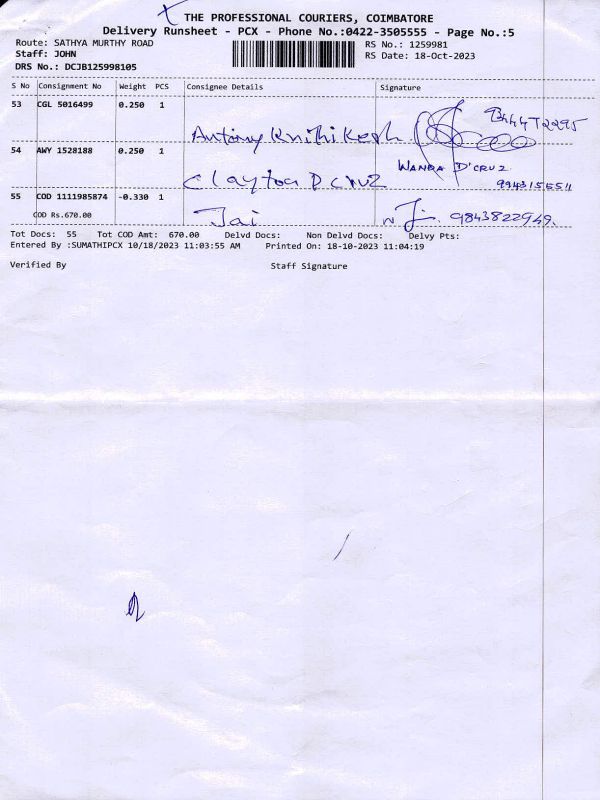 THE PROFESSIONAL COURIERS, COIMBATORE
Delivery Runsheet - PCX - Phone No.:0422-3505555 - Page No.:5
Route: SATHYA MURTHY ROAD
RS No.: 1259981
Staff: JOHN
RS Date: 18-Oct-2023
DRS No.: DCJB125998105
S No Consignment No Weight PCS Consignee Details Signature
53 CGL 5016499 0.250 1
Antony
54 AWY 1528188 0.250 1
Clayton D cruz WANDA D'CRUZ
55 COD 1111985874 -0.330 1
COD Rs.670.00 Jai 9843822949.
Tot Docs: 55 Tot COD Amt: 670.00 Delvd Docs: Non Delvd Docs: Delvy Pts:
Entered By :SUMATHIPCX 10/18/2023 11:03:55 AM Printed On: 18-10-2023 11:04:19
Verified By Staff Signature